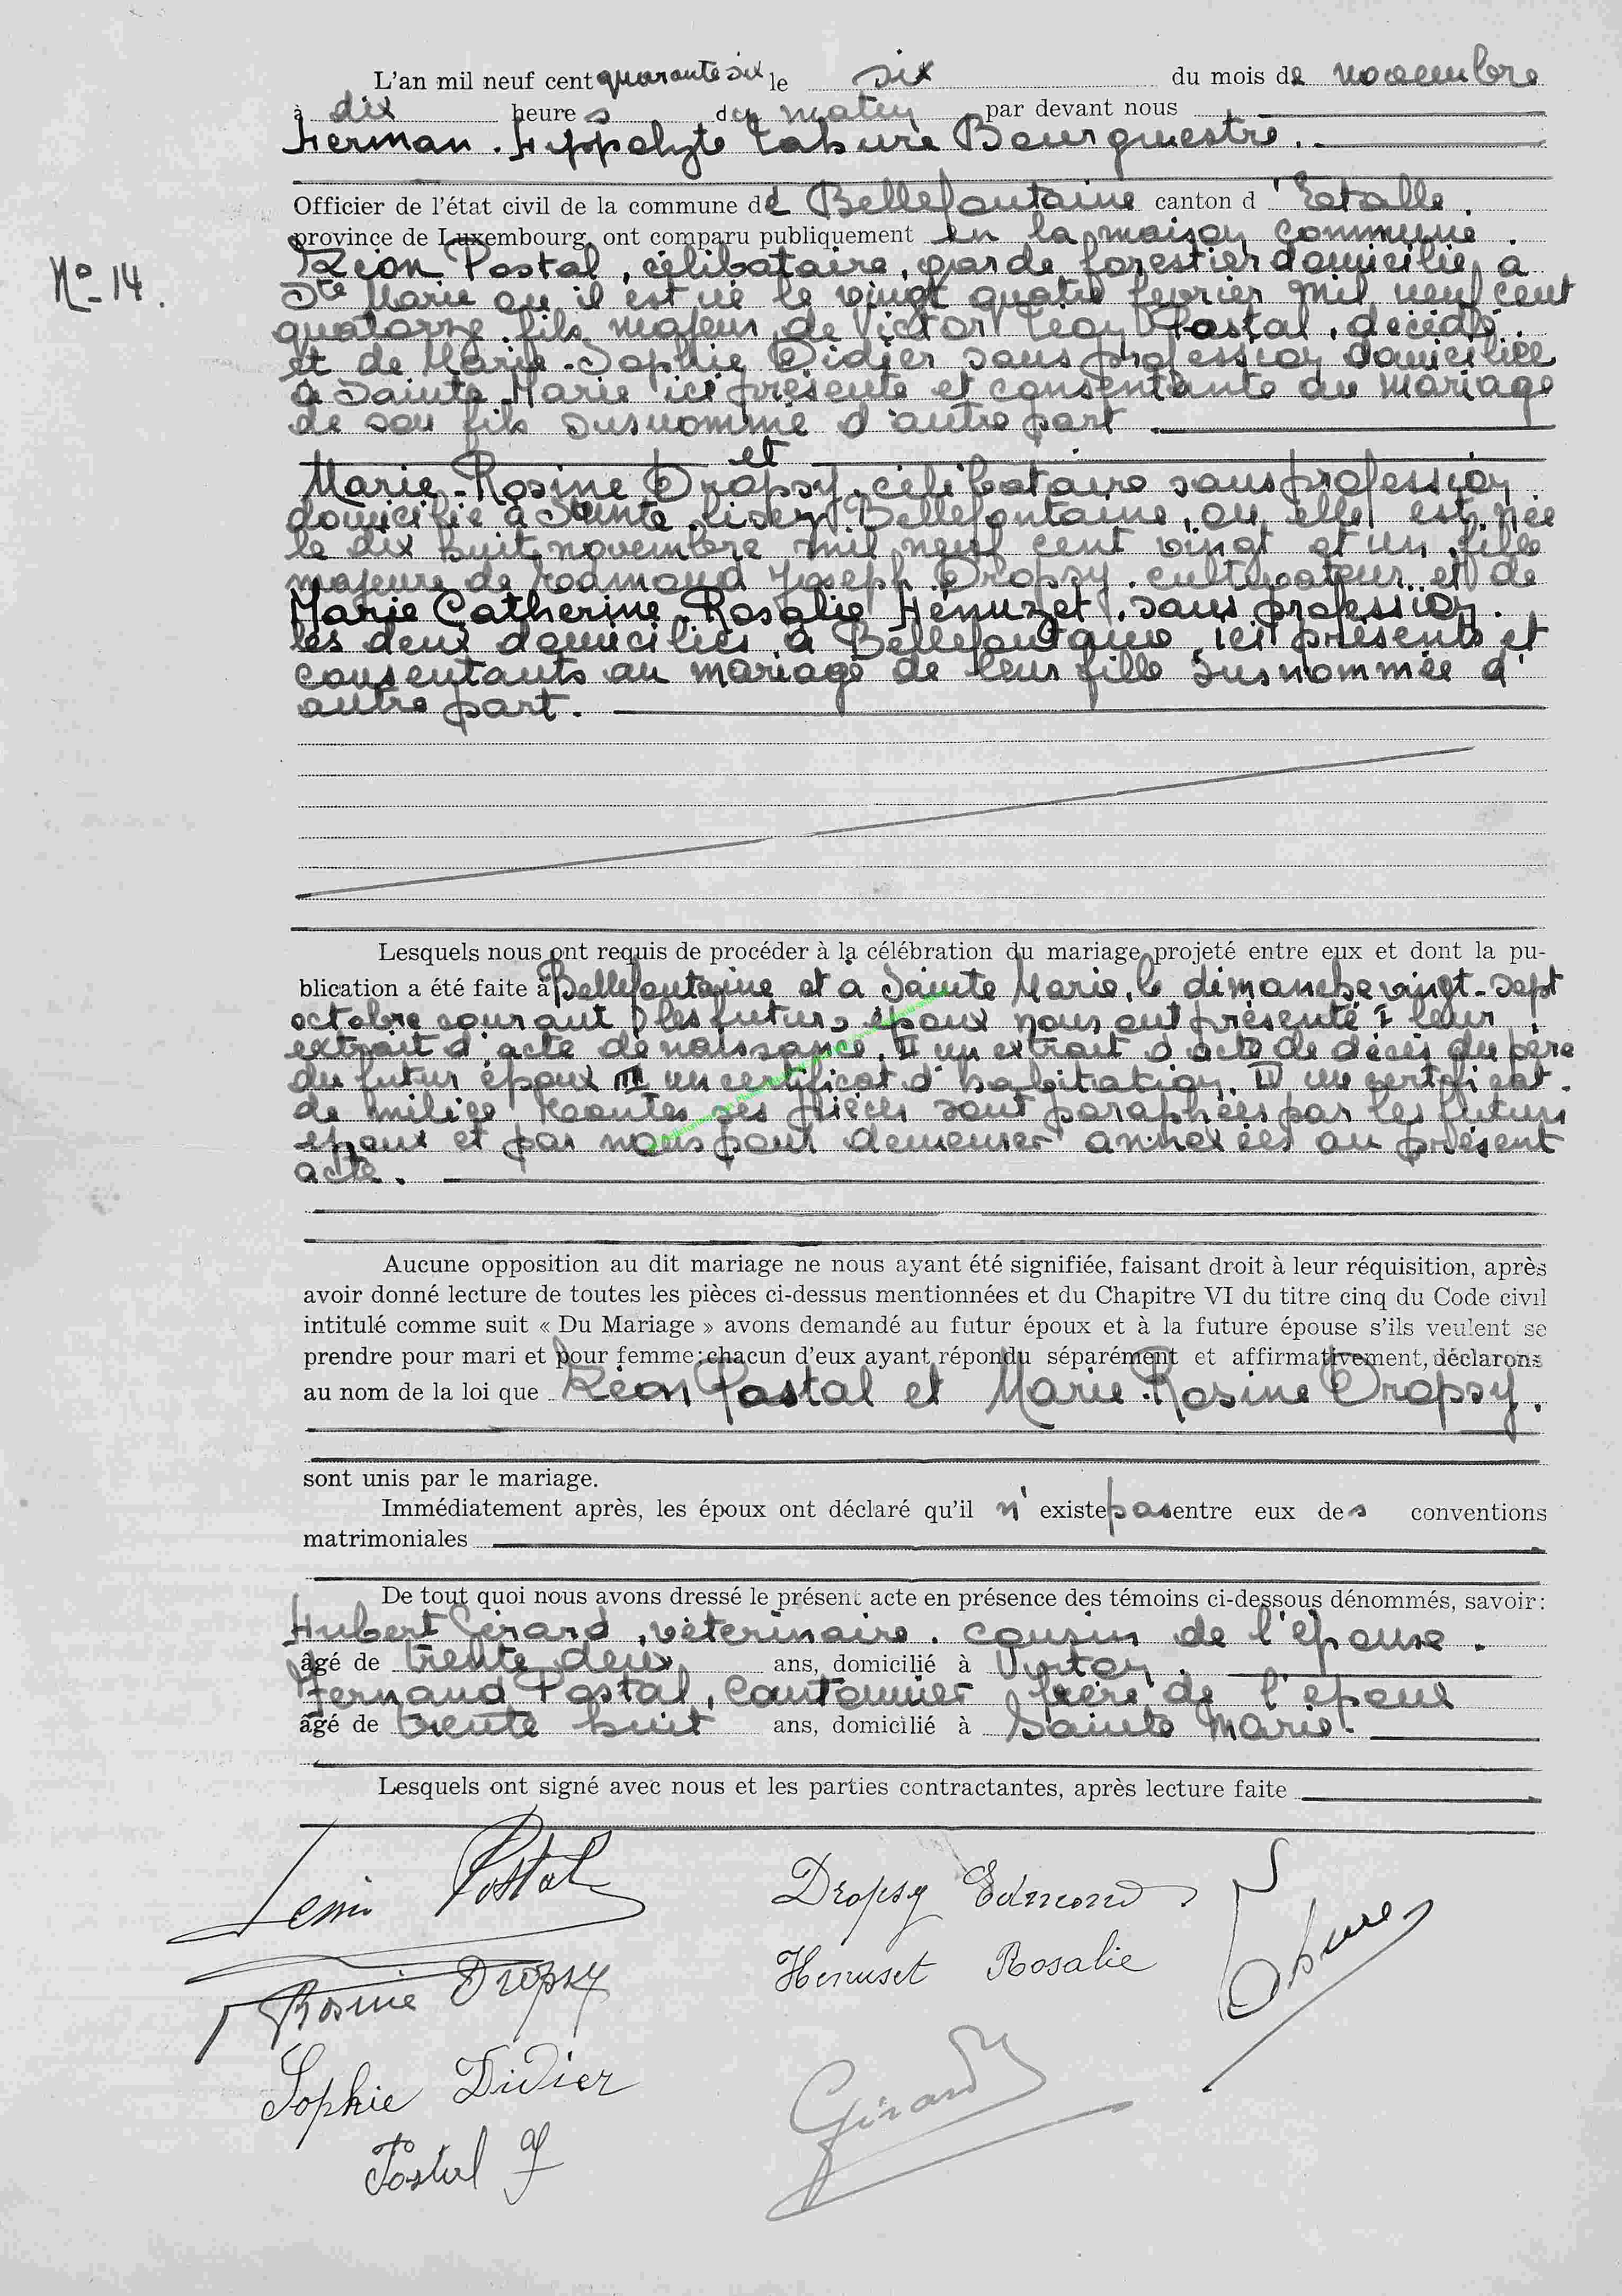 L'an mil neuf cent quarante six le six du mois de novembre
à dix heures du matin par devant nous
Herman. Hippolyte Lahure Bourgmestre.
Officier de l'état civil de la commune de Bellefontaine canton d'Etalle.
province de Luxembourg, ont comparu publiquement en la maison commune.
N° 14.
Léon Postal, célibataire, garde forestier domicilié à
Ste Marie ou il est né le vingt quatre fevrier mil neuf cent
quatorze, fils majeur de Victor Leon Postal, décédé.
et de Marie-Sophie Didier sans profession domiciliée
à Sainte Marie ici présente et consentante au mariage
de son fils susnommé d'autre part
et
Marie-Rosine Dropsy, célibataire sans profession
domicilie à Bellefontaine, ou elle est née
le dix huit novembre mil neuf cent vingt et un, fille
majeure de Edmond Joseph Dropsy, cultivateur et de
Marie Catherine Rosalie Hénuzet, sans profession.
les deux domiciliés à Bellefontaine, ici présents et
consentants au mariage de leur fille susnommée d'
autre part.
Lesquels nous ont requis de procéder à la célébration du mariage projeté entre eux et dont la pu-
blication a été faite à Bellefontaine et à Sainte Marie, le dimanche vingt-sept
octobre courant les futurs époux nous ont présenté I leur
extrait d'acte de naissance, II un extrait d'acte de décès du père
du futur époux III un certificat d'habitation, IV un certificat
de milice toutes ces pièces sont paraphées par les futurs
epoux et par nous pour demeurer annexées au présent
acte.
Aucune opposition au dit mariage ne nous ayant été signifiée, faisant droit à leur réquisition, après
avoir donné lecture de toutes les pièces ci-dessus mentionnées et du Chapitre VI du titre cinq du Code civil
intitulé comme suit « Du Mariage » avons demandé au futur époux et à la future épouse s'ils veulent se
prendre pour mari et pour femme: chacun d'eux ayant répondu séparément et affirmativement, déclarons
au nom de la loi que Léon Postal et Marie-Rosine Dropsy.
sont unis par le mariage.
Immédiatement après, les époux ont déclaré qu'il n'existe pas entre eux des conventions
matrimoniales
De tout quoi nous avons dressé le présent acte en présence des témoins ci-dessous dénommés, savoir:
Hubert Gérard, véterinaire, cousin de l'épouse.
âgé de trente deux ans, domicilié à Virton.
Fernand Postal, Cantonnier frère de l'epoux
âgé de trente huit ans, domicilié à Sainte Marie.
Lesquels ont signé avec nous et les parties contractantes, après lecture faite
Léon Postal
Dropsy Edmond
Lahure
Rosine Dropsy
Henuset Rosalie
Sophie Didier
Gérard
Postal f